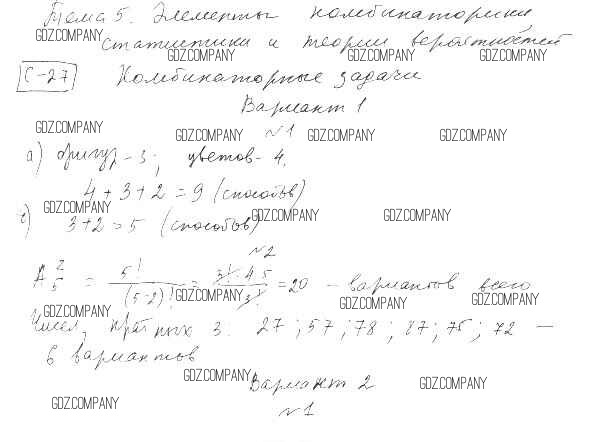 Тема 5. Элементы комбинаторики
GDZ.COMPANY
статистики и теории вероятностей
GDZ.COMPANY GDZ.COMPANY GDZ.COMPANY
С-27 Комбинаторные задачи
Вариант 1
GDZ.COMPANY
№1
GDZ.COMPANY GDZ.COMPANY GDZ.COMPANY
а) фигур - 3; цветов - 4.
4 + 3 + 2 = 9 (способов)
GDZ.COMPANY GDZ.COMPANY GDZ.COMPANY
3+2=5 (способов)
№2
A 2 5 = 5! / (5-2)! = 3! · 4 · 5 / 3! = 20 - вариантов всего
GDZ.COMPANY GDZ.COMPANY GDZ.COMPANY
GDZ.COMPANY
Чисел, кратных 3: 27; 57; 78; 87; 75; 72 —
6 вариантов
GDZ.COMPANY GDZ.COMPANY
Вариант 2
GDZ.COMPANY
№1